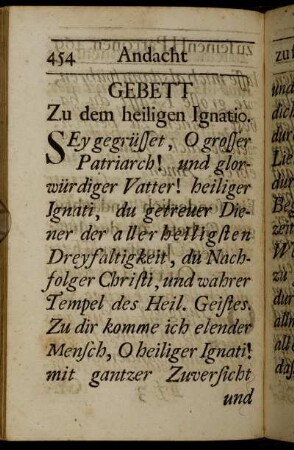 454 Andacht
GEBETT
Zu dem heiligen Ignatio.
SEy gegrüſſet, O groſſer
Patriarch! und glor-
würdiger Vatter! heiliger
Ignati, du getreuer Die-
ner der allerheiligſten
Dreyfaltigkeit, du Nach-
folger Chriſti, und wahrer
Tempel des Heil. Geiſtes.
Zu dir komme ich elender
Menſch, O heiliger Ignati!
mit gantzer Zuverſicht
und